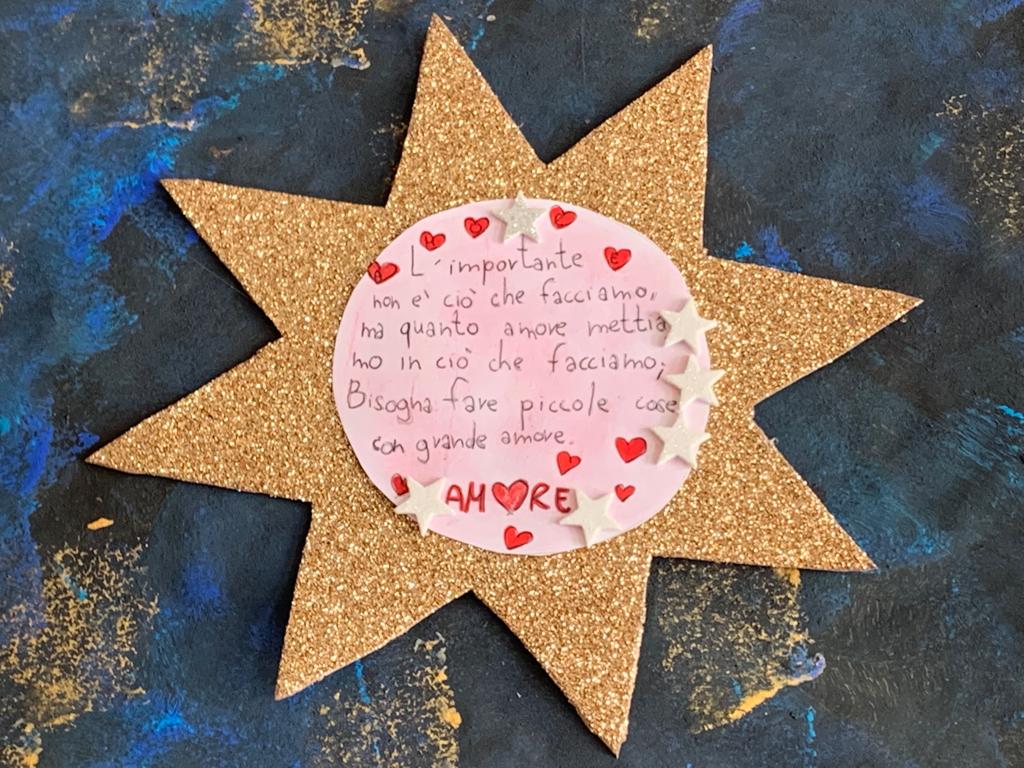 A M O R E
L'importante
non e' ciò che facciamo,
ma quanto amore mettia
mo in ciò che facciamo;
Bisogna fare piccole cose
con grande amore.
AM❤RE